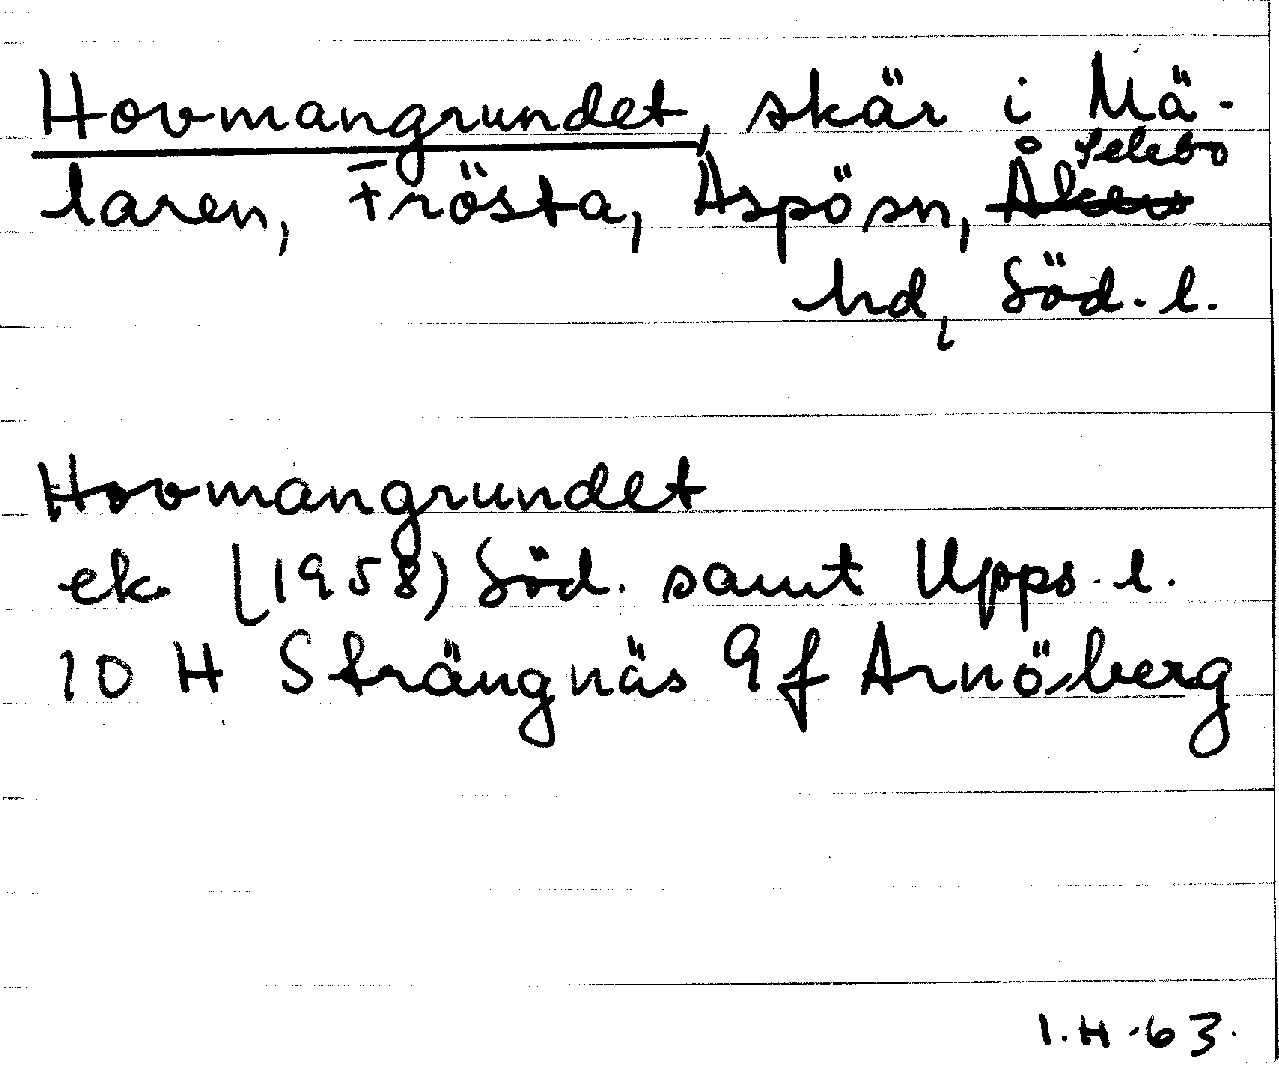 Hovmangrundet, skär i Mä-
laren, Frösta, Aspö sn, ~~Åkers~~ Selebo
hd, Söd. l.
Hovmangrundet
ek. (1958) Söd. samt Upps. l.
10 H Strängnäs 9 f Arnöberg
I.H.63.